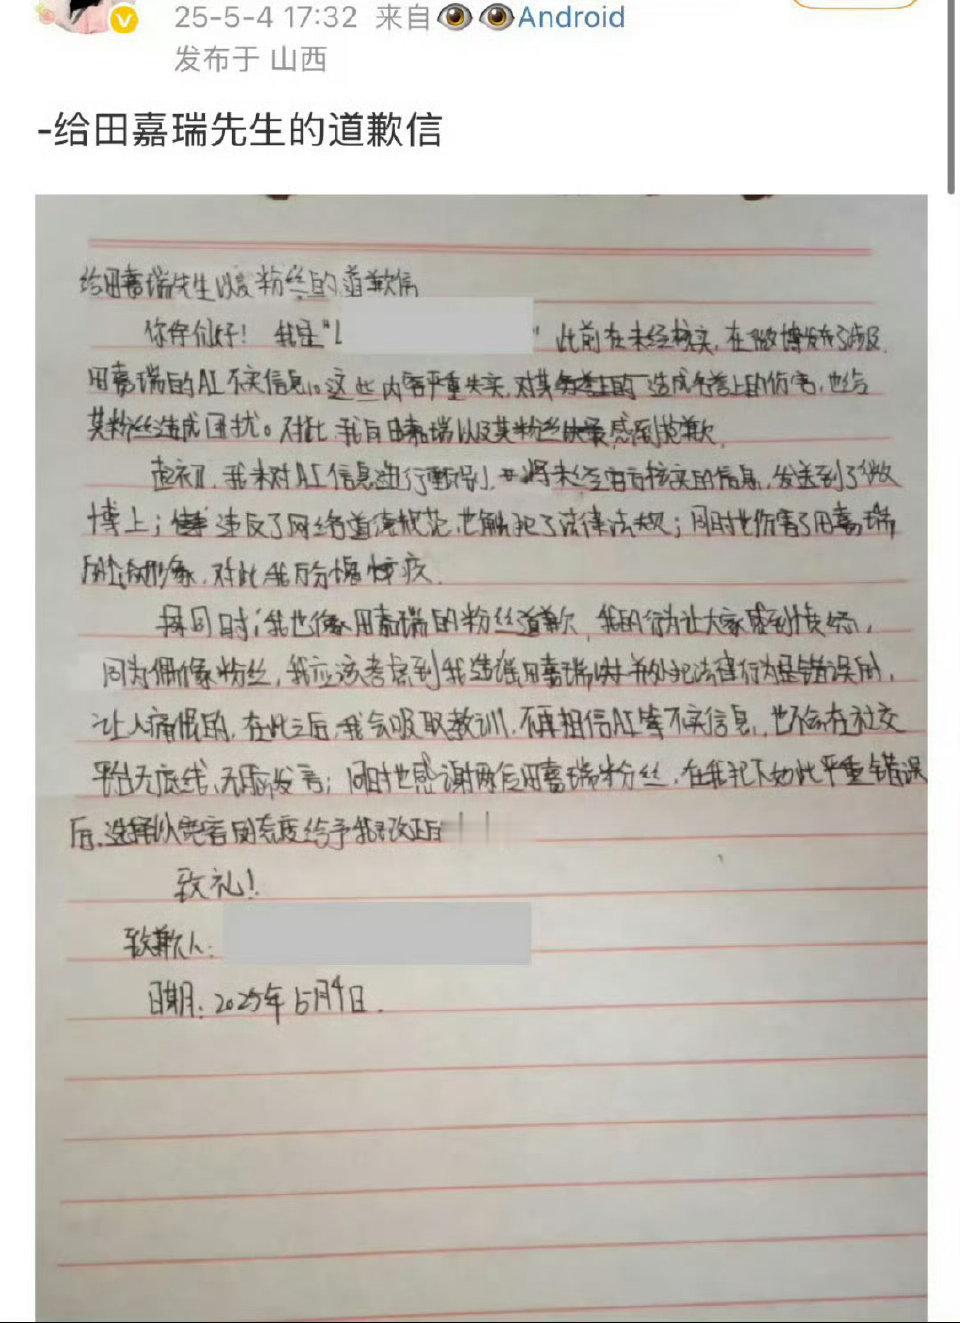 25-5-4 17:32 来自👁👁Android
发布于 山西
-给田嘉瑞先生的道歉信
给田嘉瑞先生以及粉丝的道歉信
你们好！我是"L " 此前在未经核实，在微博发布了涉及
田嘉瑞的AI不实信息。这些内容严重失实，对其造成名誉上的伤害，也给
其粉丝造成困扰。对此，我向田嘉瑞以及其粉丝感到抱歉
起初，我未对AI信息进行甄别，并将未经官方核实的信息，发送到了微
博上；违反了网络道德规范，也触犯了法律法规；同时也伤害了田嘉瑞
的形象，对此我万分愧疚。
与此同时；我也像田嘉瑞的粉丝道歉，我的行为让大家感到愤怒，
同为偶像粉丝，我应该考虑到我造谣田嘉瑞行为是错误的，
让人痛恨的，在此之后，我会吸取教训，不再相信AI等不实信息，也不会在社交
平台无底线，无脑发言；同时也感谢田嘉瑞粉丝，在我犯下如此严重错误
后，选择以宽容的态度给予我改正
致礼！
致歉人：
日期：2025年5月4日．